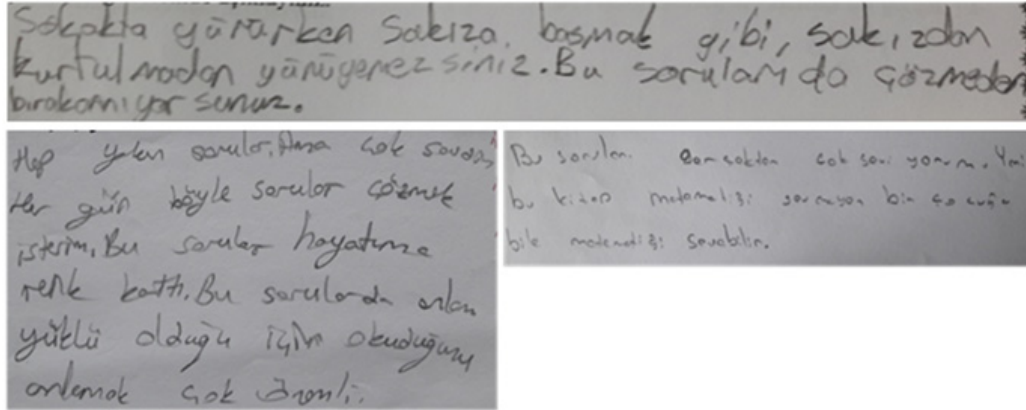 Sokakta yürürken sakıza basmak gibi, sakızdan
kurtulmadan yürüyemezsiniz. Bu soruları da çözmeden
bırakamıyorsunuz.
Hep yakın sorular. Ama çok
Her gün böyle sorular çözmek
isterim. Bu sorular hayatıma
renk kattı. Bu sorularda anlam
yüklü olduğu için okuduğunu
anlamak çok önemli.
Bu soruları çok seviyorum. Yani
bu kitap matematiği sevmeyen bir çocuğa
bile matematiği sevebilir.